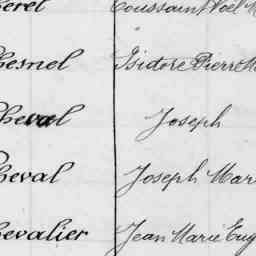 eret Toussaint Noël M
hesnel Isidore Pierre M
heval Joseph
heval Joseph Mar
hevalier Jean Marie Eug